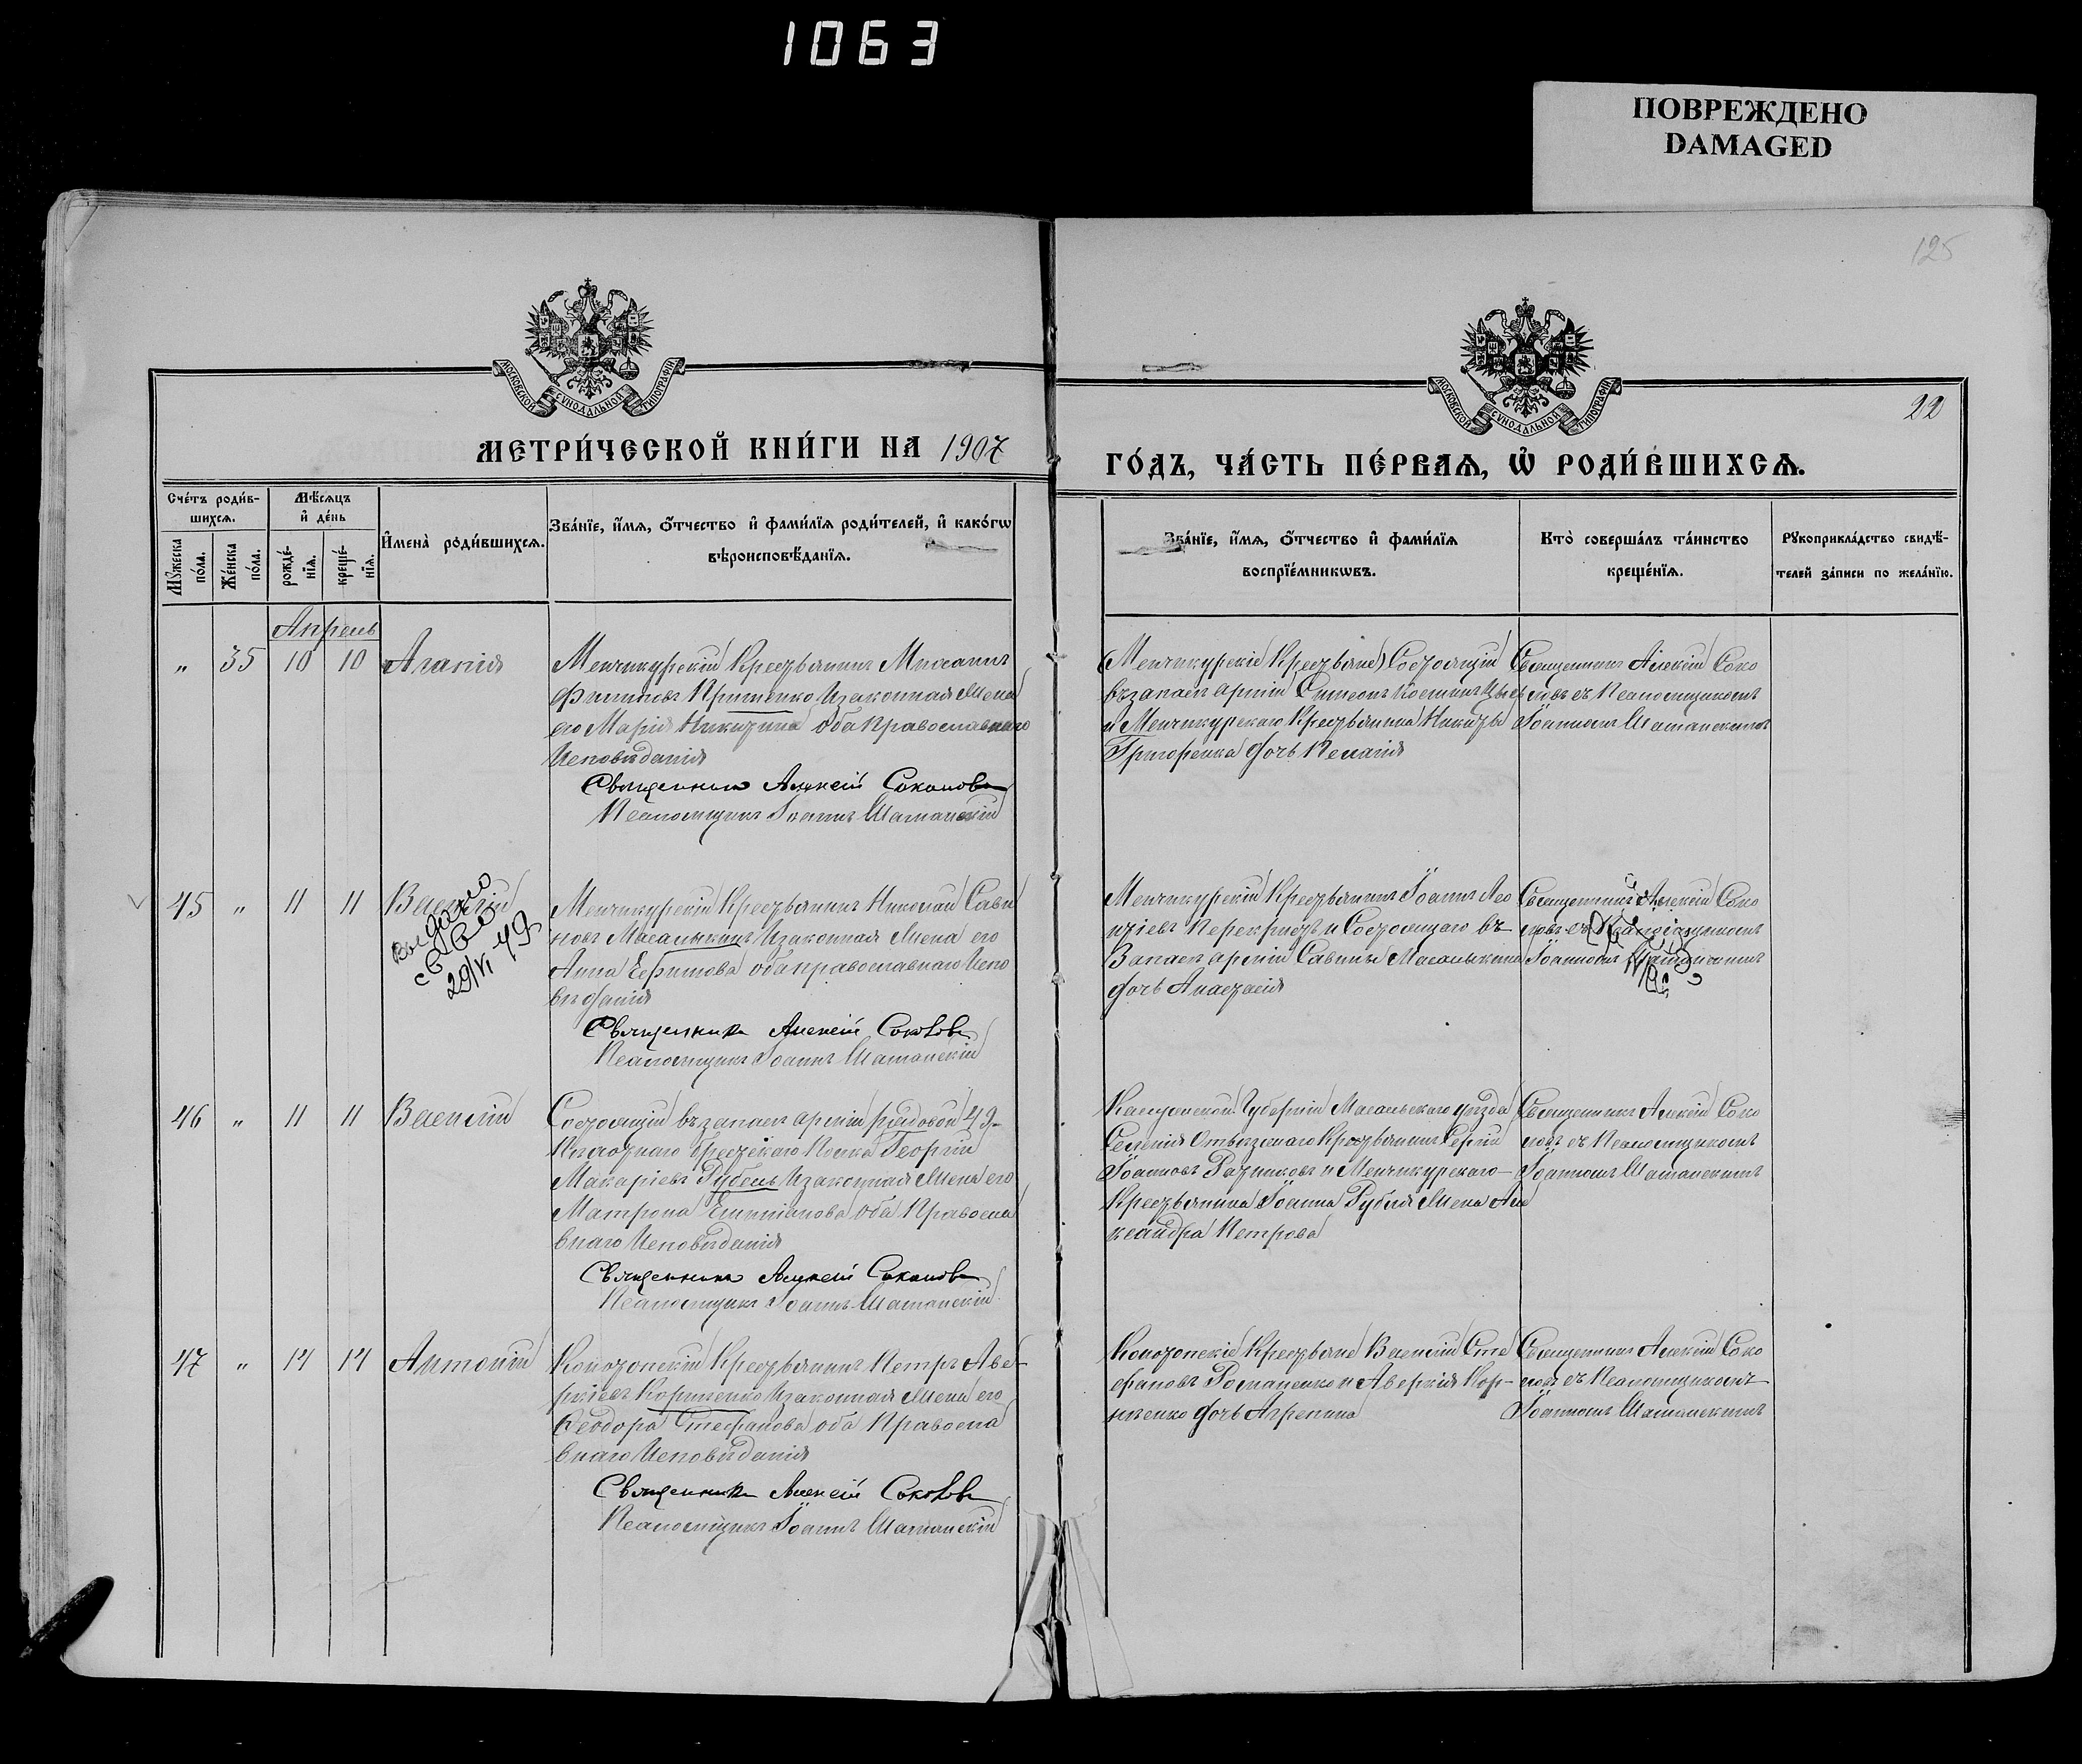 1063
ПОВРЕЖДЕНО
DAMAGED
125
22
МОСКОВСКОЙ СѴНОДАЛЬНОЙ ТИПОГРАФІИ
МОСКОВСКОЙ СѴНОДАЛЬНОЙ ТИПОГРАФІИ
МЕТРИ́ЧЕСКОЙ КНИ́ГИ НА 1907
ГО́ДЪ, ЧА́СТЬ ПЕ́РВАЯ, Ѽ РОДИ́ВШИХСЯ.
Сче́тъ роди́в-
шихся.
Мꙋ́жеска по́ла.
Же́нска по́ла.
Мѣ́сяцъ
и҆ де́нь
рожде́-
нїя.
креще́-
нїя.
И҆мена̀ роди́вшихся.
Зва́нїе, и҆́мя, ѻ҆́тчество и҆ фами́лїя роди́телей, и҆ како́гѡ
вѣроисповѣ́данїя.
Зва́нїе, и҆́мя, ѻ҆́тчество и҆ фами́лїя
воспрїе́мникѡвъ.
Кто̀ соверша́лъ та́инство
креще́нїя.
Рꙋкоприкла́дство свидѣ́-
телей за́писи по жела́нїю.
Апрель
" 35 10 10 Агапія
Менчикурскій Крестьянинъ Михаилъ
Филиповъ Притенко и законная жена
его Марія Никитина оба Православнаго
Исповѣданія
Священникъ Алексій Соколовъ
Псаломщикъ Іоаннъ Шаманскій
(Менчикурскіе Крестьяне) Состоящій
въ запасѣ арміи Симеонъ
и Менчикурскаго Крестьянина Никиты
Григоренка дочь Пелагія
Священникъ Алексій Соко
ловъ съ Псаломщикомъ
Іоанномъ Шаманскимъ
45 " 11 11 Василій
выдано
св-во
29/VI 49
Менчикурскій Крестьянинъ Николай Сави
новъ Масалыкинъ и законная жена его
Анна Ефимова оба православнаго Испо
вѣданія
Священникъ Алексій Соколовъ
Псаломщикъ Іоаннъ Шаманскій
Менчикурскій Крестьянинъ Іоаннъ Лео
нтіевъ и Состоящаго въ
Запасѣ арміи Саввины Масалыкина
дочь Анастасія
Священникъ Алексій Соко
ловъ съ Псаломщикомъ
Іоанномъ Шаманскимъ
46 " 11 11 Василій
Состоящій въ запасѣ арміи рядовой 49-
Пѣхотнаго Брестскаго Полка Георгій
Макаріевъ Рубель и законная жена его
Матрона оба Правосла
внаго Исповѣданія
Священникъ Алексій Соколовъ
Псаломщикъ Іоаннъ Шаманскій
Калужской Губерніи Масальскаго уѣзда
Селенія Крестьянинъ Сергій
Іоанновъ и Менчикурскаго
Крестьянина Іоанна Рубля жена Але
ксандра Петрова
Священникъ Алексій Соко
ловъ съ Псаломщикомъ
Іоанномъ Шаманскимъ
47 " 14 14 Антоній
Копотопскій Крестьянинъ Петръ Аве-
ркіевъ Корниенко и законная жена его
Ѳеодора Стефанова оба Правосла
внаго Исповѣданія
Священникъ Алексій Соколовъ
Псаломщикъ Іоаннъ Шаманскій
Крестьяне Василій Сте
фановъ Романенко и Аверкія Кор-
ниенко дочь Агрепина
Священникъ Алексій Соко
ловъ съ Псаломщикомъ
Іоанномъ Шаманскимъ